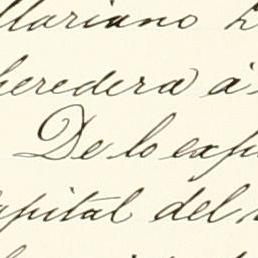 Mariano
heredera á
De lo expu
apital del